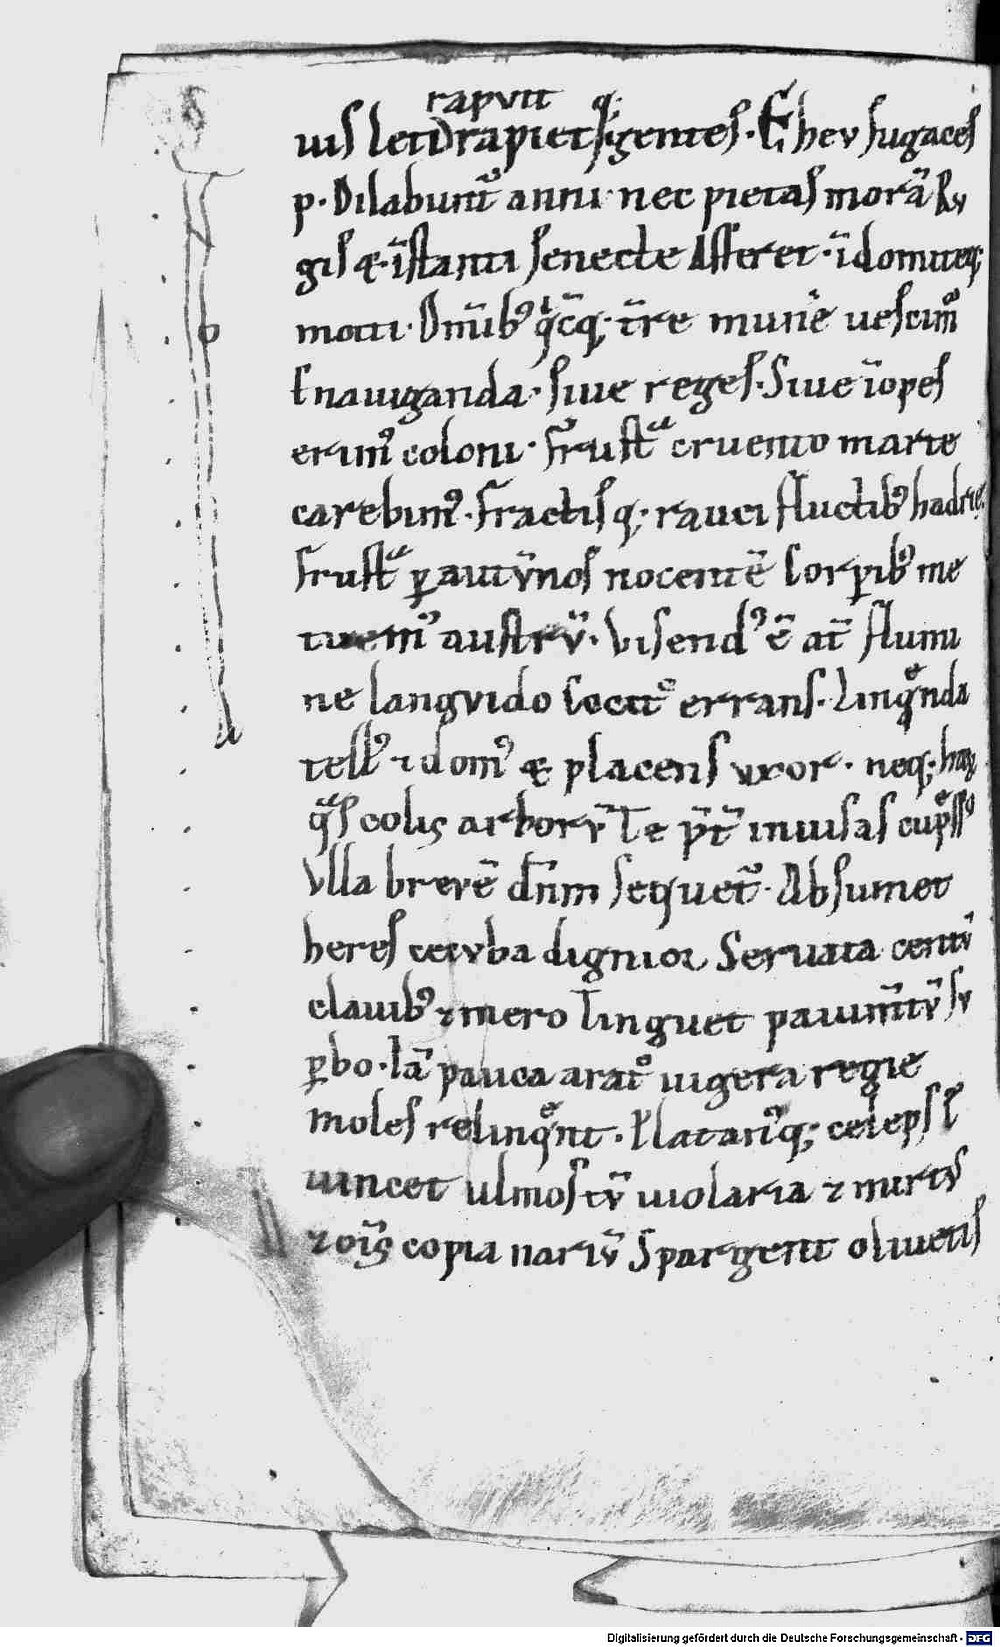 rapvit q;
uis leti rapiet q; gentes. Ehev fugaces
p. Dilabunt᷑ anni nec pietas morā Rv
gis & īstanti senecte Afferet. īdomiteq;
morti. Om̄ib9 q̇cq; t̄re munē uescim9
Enauiganda. siue reges. Siue īopes
erim9 coloni. Frustᵃ crvento marte
carebim9. Fractisq; rauci fluctib9 hadrie
Frustᵃ ꝑ autv̄nos nocentē Corꝑib9 me
tuem9 austrv̄. Visend9 ē at̄ flumi
ne langvido Cocit9 errans. Linqᵉnda
tell9 ⁊ dom9 & placens vxor. neq; haꝝ
qᵃs colis arborv̄ Te p̄t̄ inuisas cupᵉss9
Vlla brevē dn̄m sequet᷑. Absumet
heres cecvba dignior Servata centv̄
clauib9 ⁊ mero Tinguet pauim̄tv̄ sv
ꝑbo. Iā pauca arat9 iugera regie
Moles relinqᵉnt. Platan9q; celeps
uincet ulmos tv̄ uiolaria ⁊ mirt9
⁊ oīs copia nariv̄ Spargent oliuetis
Digitalisierung gefördert durch die Deutsche Forschungsgemeinschaft - DFG